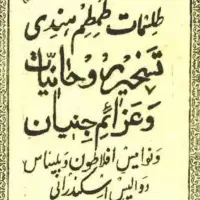 طلسمات طمطم هندی
تسخیر روحانیات
وعزائم جنیان
ونوامیس افلاطون وبلیناس
دوالیس اسکندرانی